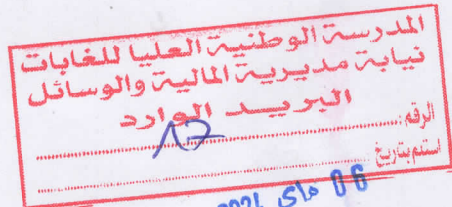 المدرسة الوطنية العليا للغابات
نيابة مديرية المالية والوسائل
البريد الوارد
الرقم: 17
استلم بتاريخ
06 ماي 2024